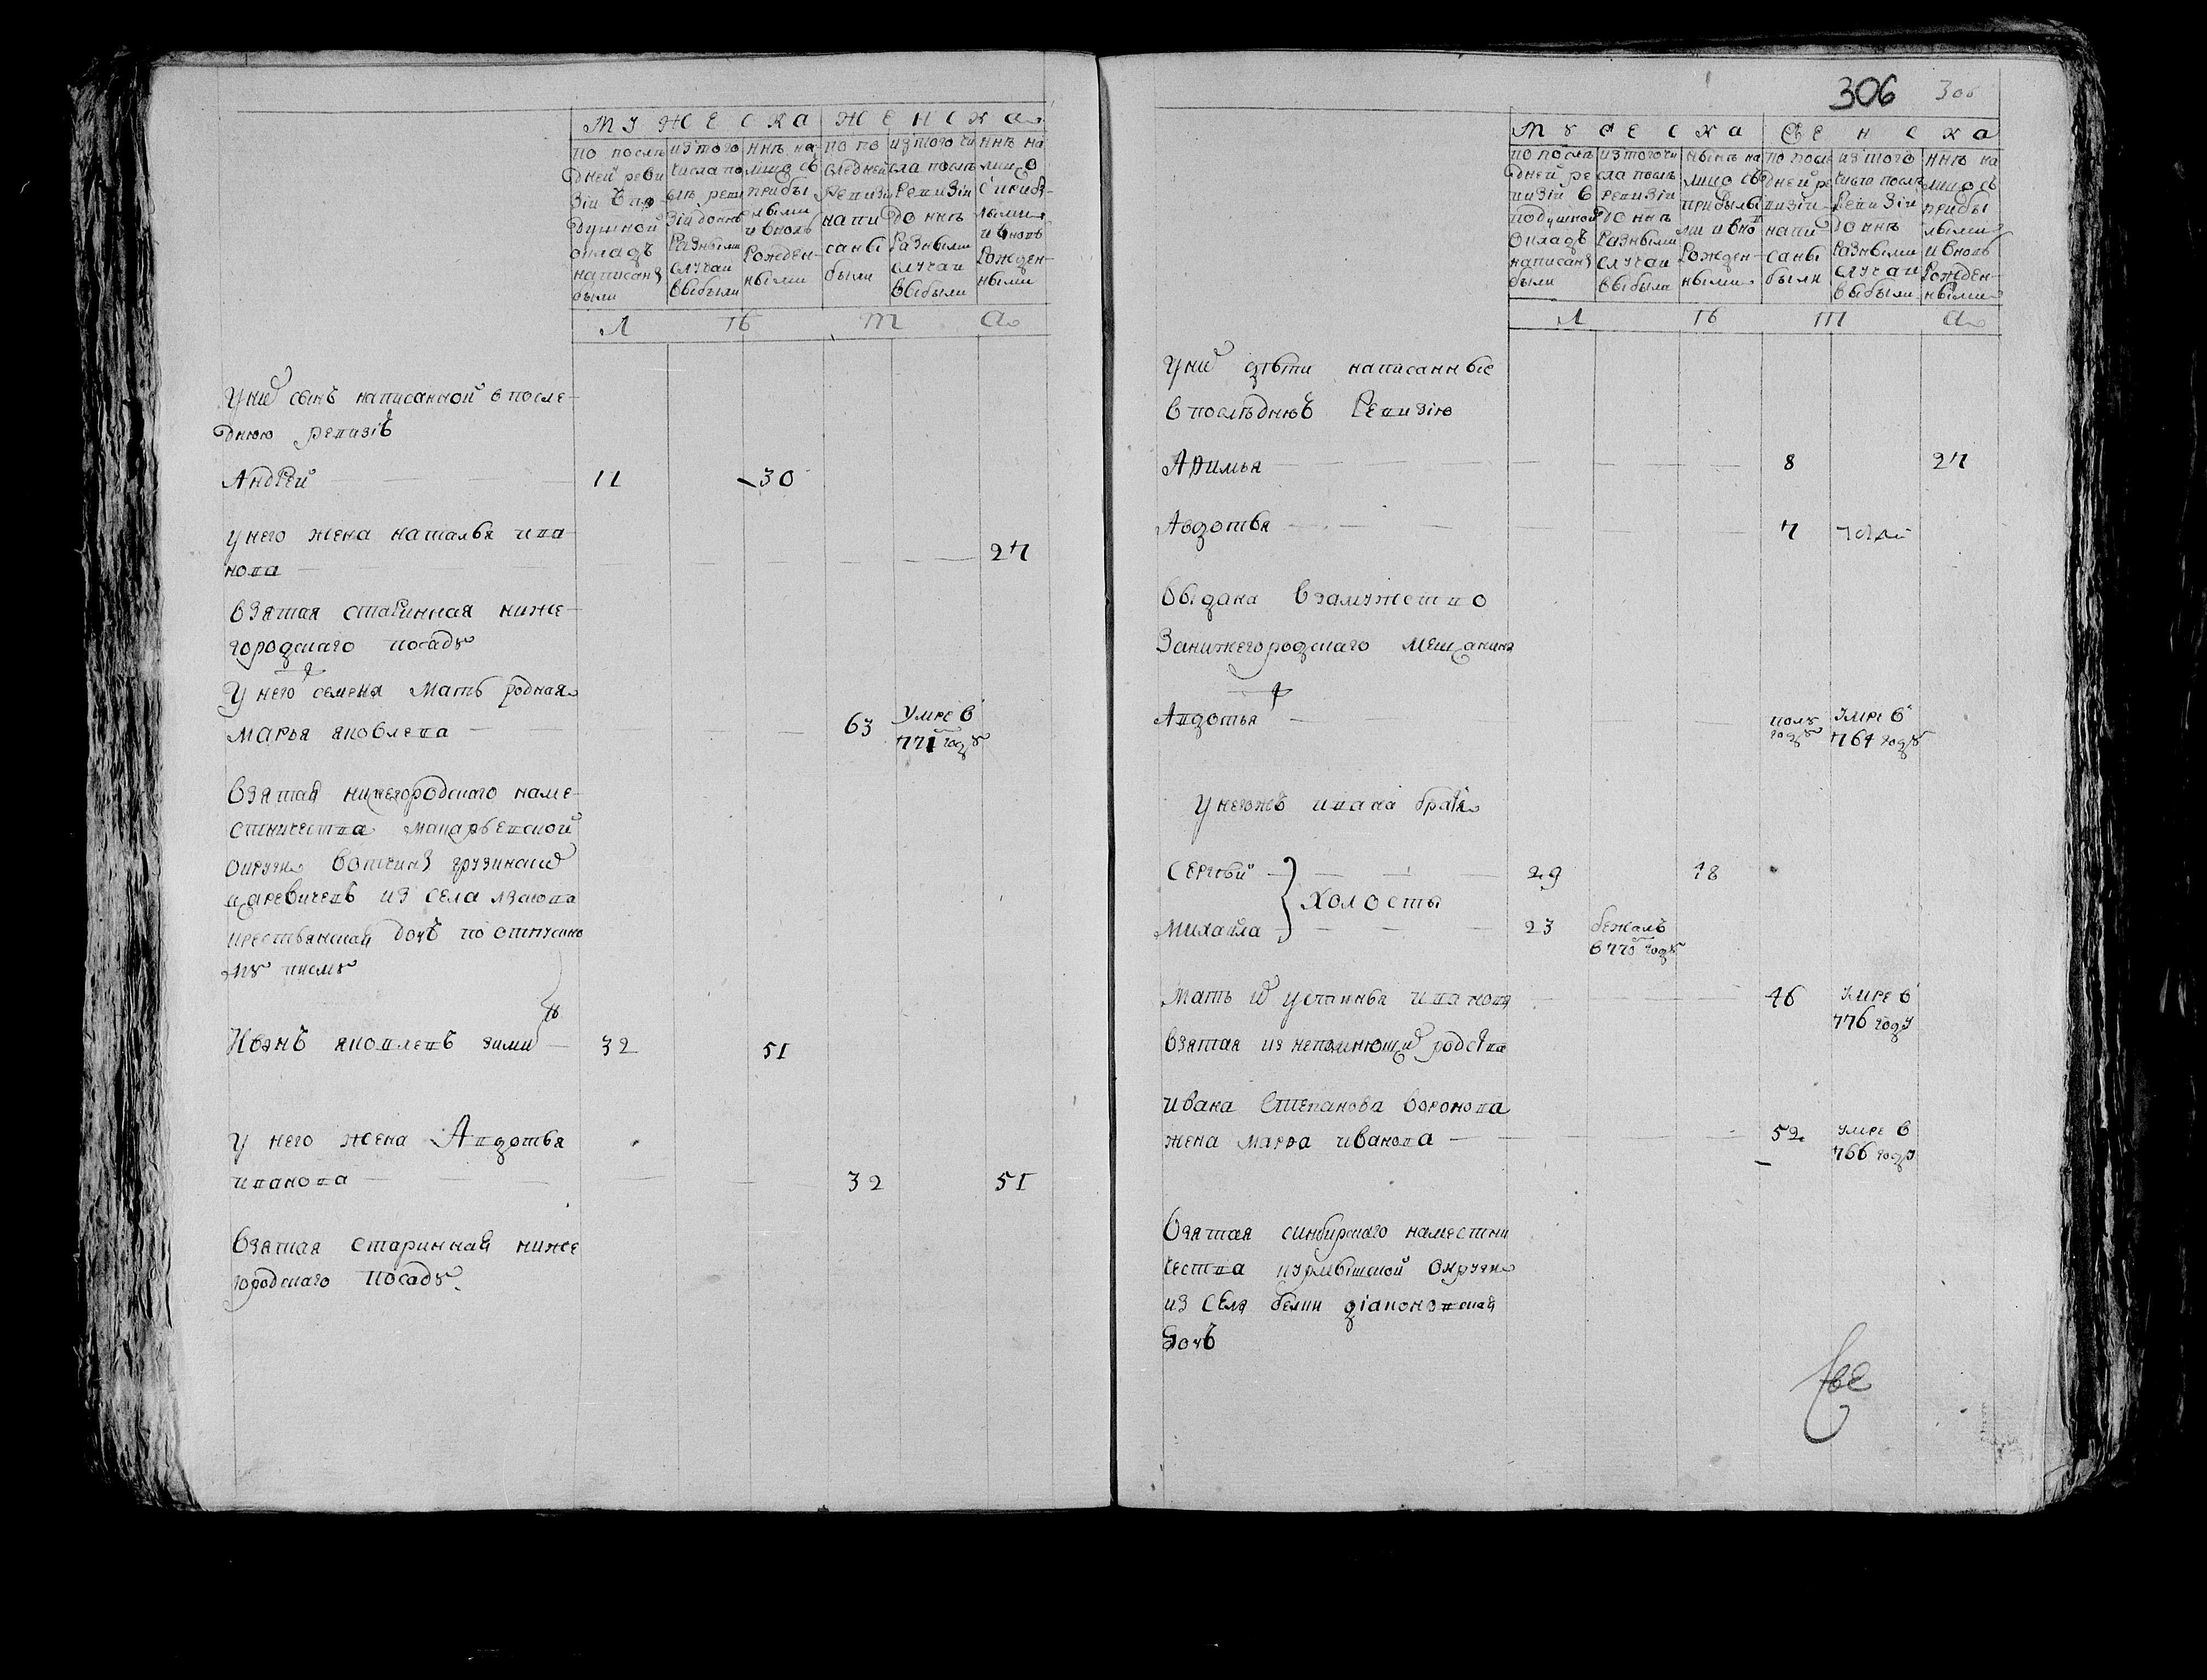 МУЖЕСКА ЖЕНСКА
по послѣдней ревизіи в подушной окладъ написаны были
из того числа после ревизіи до ннѣ разными случаи выбыли
ннѣ на лицо съ прибылыми и вновь рожденными
по последней ревизіи написаны были
из того числа послѣ ревизіи до ннѣ разными случаи выбыли
ннѣ на лицо с прибылыми и вновь рожденными
Л ѣ т а
У них сынъ написанной в после-
днюю ревизiю
Андрей 11 30
у него жена наталья ива-
нова 27
взятая старинная ниже-
городскаго посаду
У него семена мать родная
марья яковлева 63 умре в 771 году
взятая нижегородскаго наме-
стничества макарьевской
округи вотчины грузинских
царевичевъ из села лыскова
крестьянская дочь по отпускно
му писму
Иванъ яковлевъ зими 32 51
у него жена Авдотья
иванова 32 51
взятая старинная ниже
городскаго посаду
306 306
МУЖЕСКА ЖЕНСКА
по послѣдней ревизій в подушной окладъ написаны были
из того числа послѣ ревизіи до ннѣ разными случаи выбыли
нынѣ на лицо съ прибылыми и вновь рожденными
по последней ревизіи написаны были
из того числа послѣ ревизіи до ннѣ разными случаи выбыли
ннѣ на лицо съ прибылыми и вновь рожденными
Л ѣ т а
У них дѣти написанные
в послѣднюю ревизію
Акилья 8 27
Авдотья 7
выдана в замужество
за нижегородскаго мещанина
Авдотья полу году умре в 764 году
У него жъ ивана братья
Сергѣй 29 48
холосты
Михайла 23 бежалъ в 775 году
Мать их устинья иванова 46 умре в 776 году
взятая из непомнющих родства
ивана Степанова воронова
жена марфа иванова 52 умре в 766 году
взятая синбирскаго наместни
чества курмышской округи
из села белки діаконовская
дочь